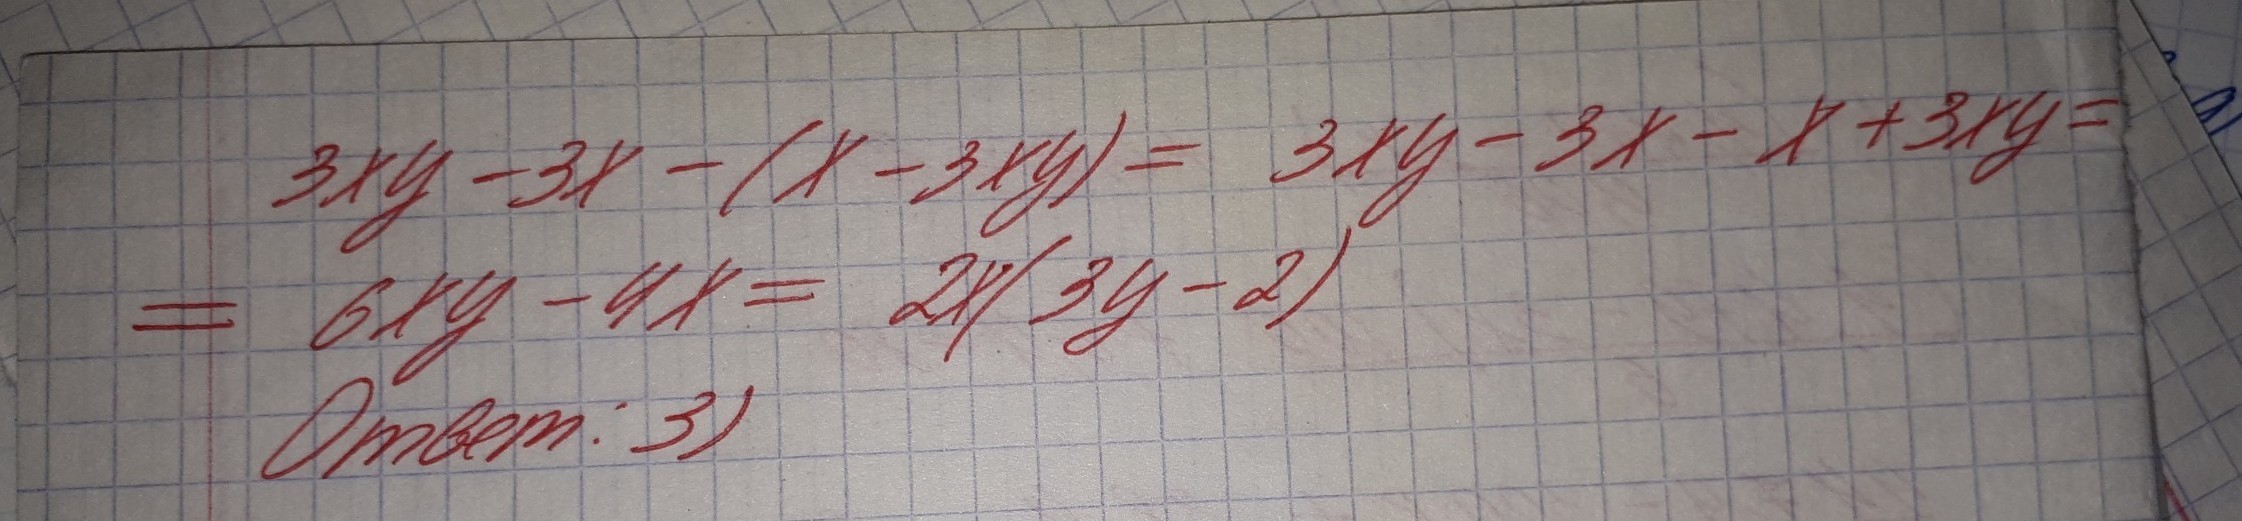 3xy - 3x - (x - 3xy) = 3xy - 3x - x + 3xy =
= 6xy - 4x = 2x(3y - 2)
Ответ: 3)